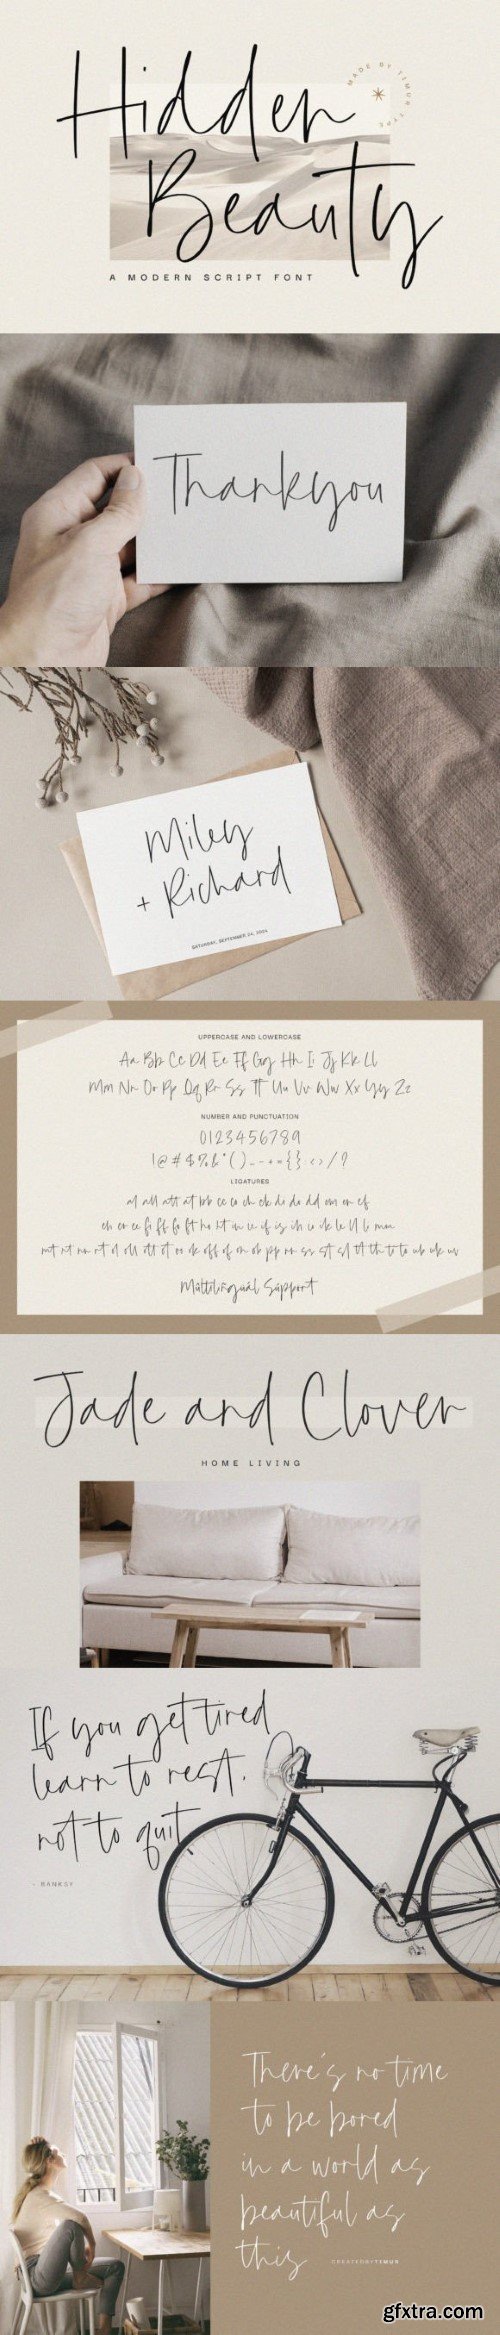 Hidden
MADE BY TIMUR TYPE
Beauty
A MODERN SCRIPT FONT
Thankyou
Miley
+ Richard
SATURDAY, SEPTEMBER 24, 2024
UPPERCASE AND LOWERCASE
Aa Bb Cc Dd Ee Ff Gg Hh Ii Jj Kk Ll
Mm Nn Oo Pp Qq Rr Ss Tt Uu Vv Ww Xx Yy Zz
NUMBER AND PUNCTUATION
0123456789
LIGATURES
Multilingual Support
Jade and Clover
HOME LIVING
If you get tired
learn to rest,
not to quit
- BANKSY
There's no time
to be bored
in a world as
beautiful as
this
CREATEDBYTIMUR
gfxtra.com